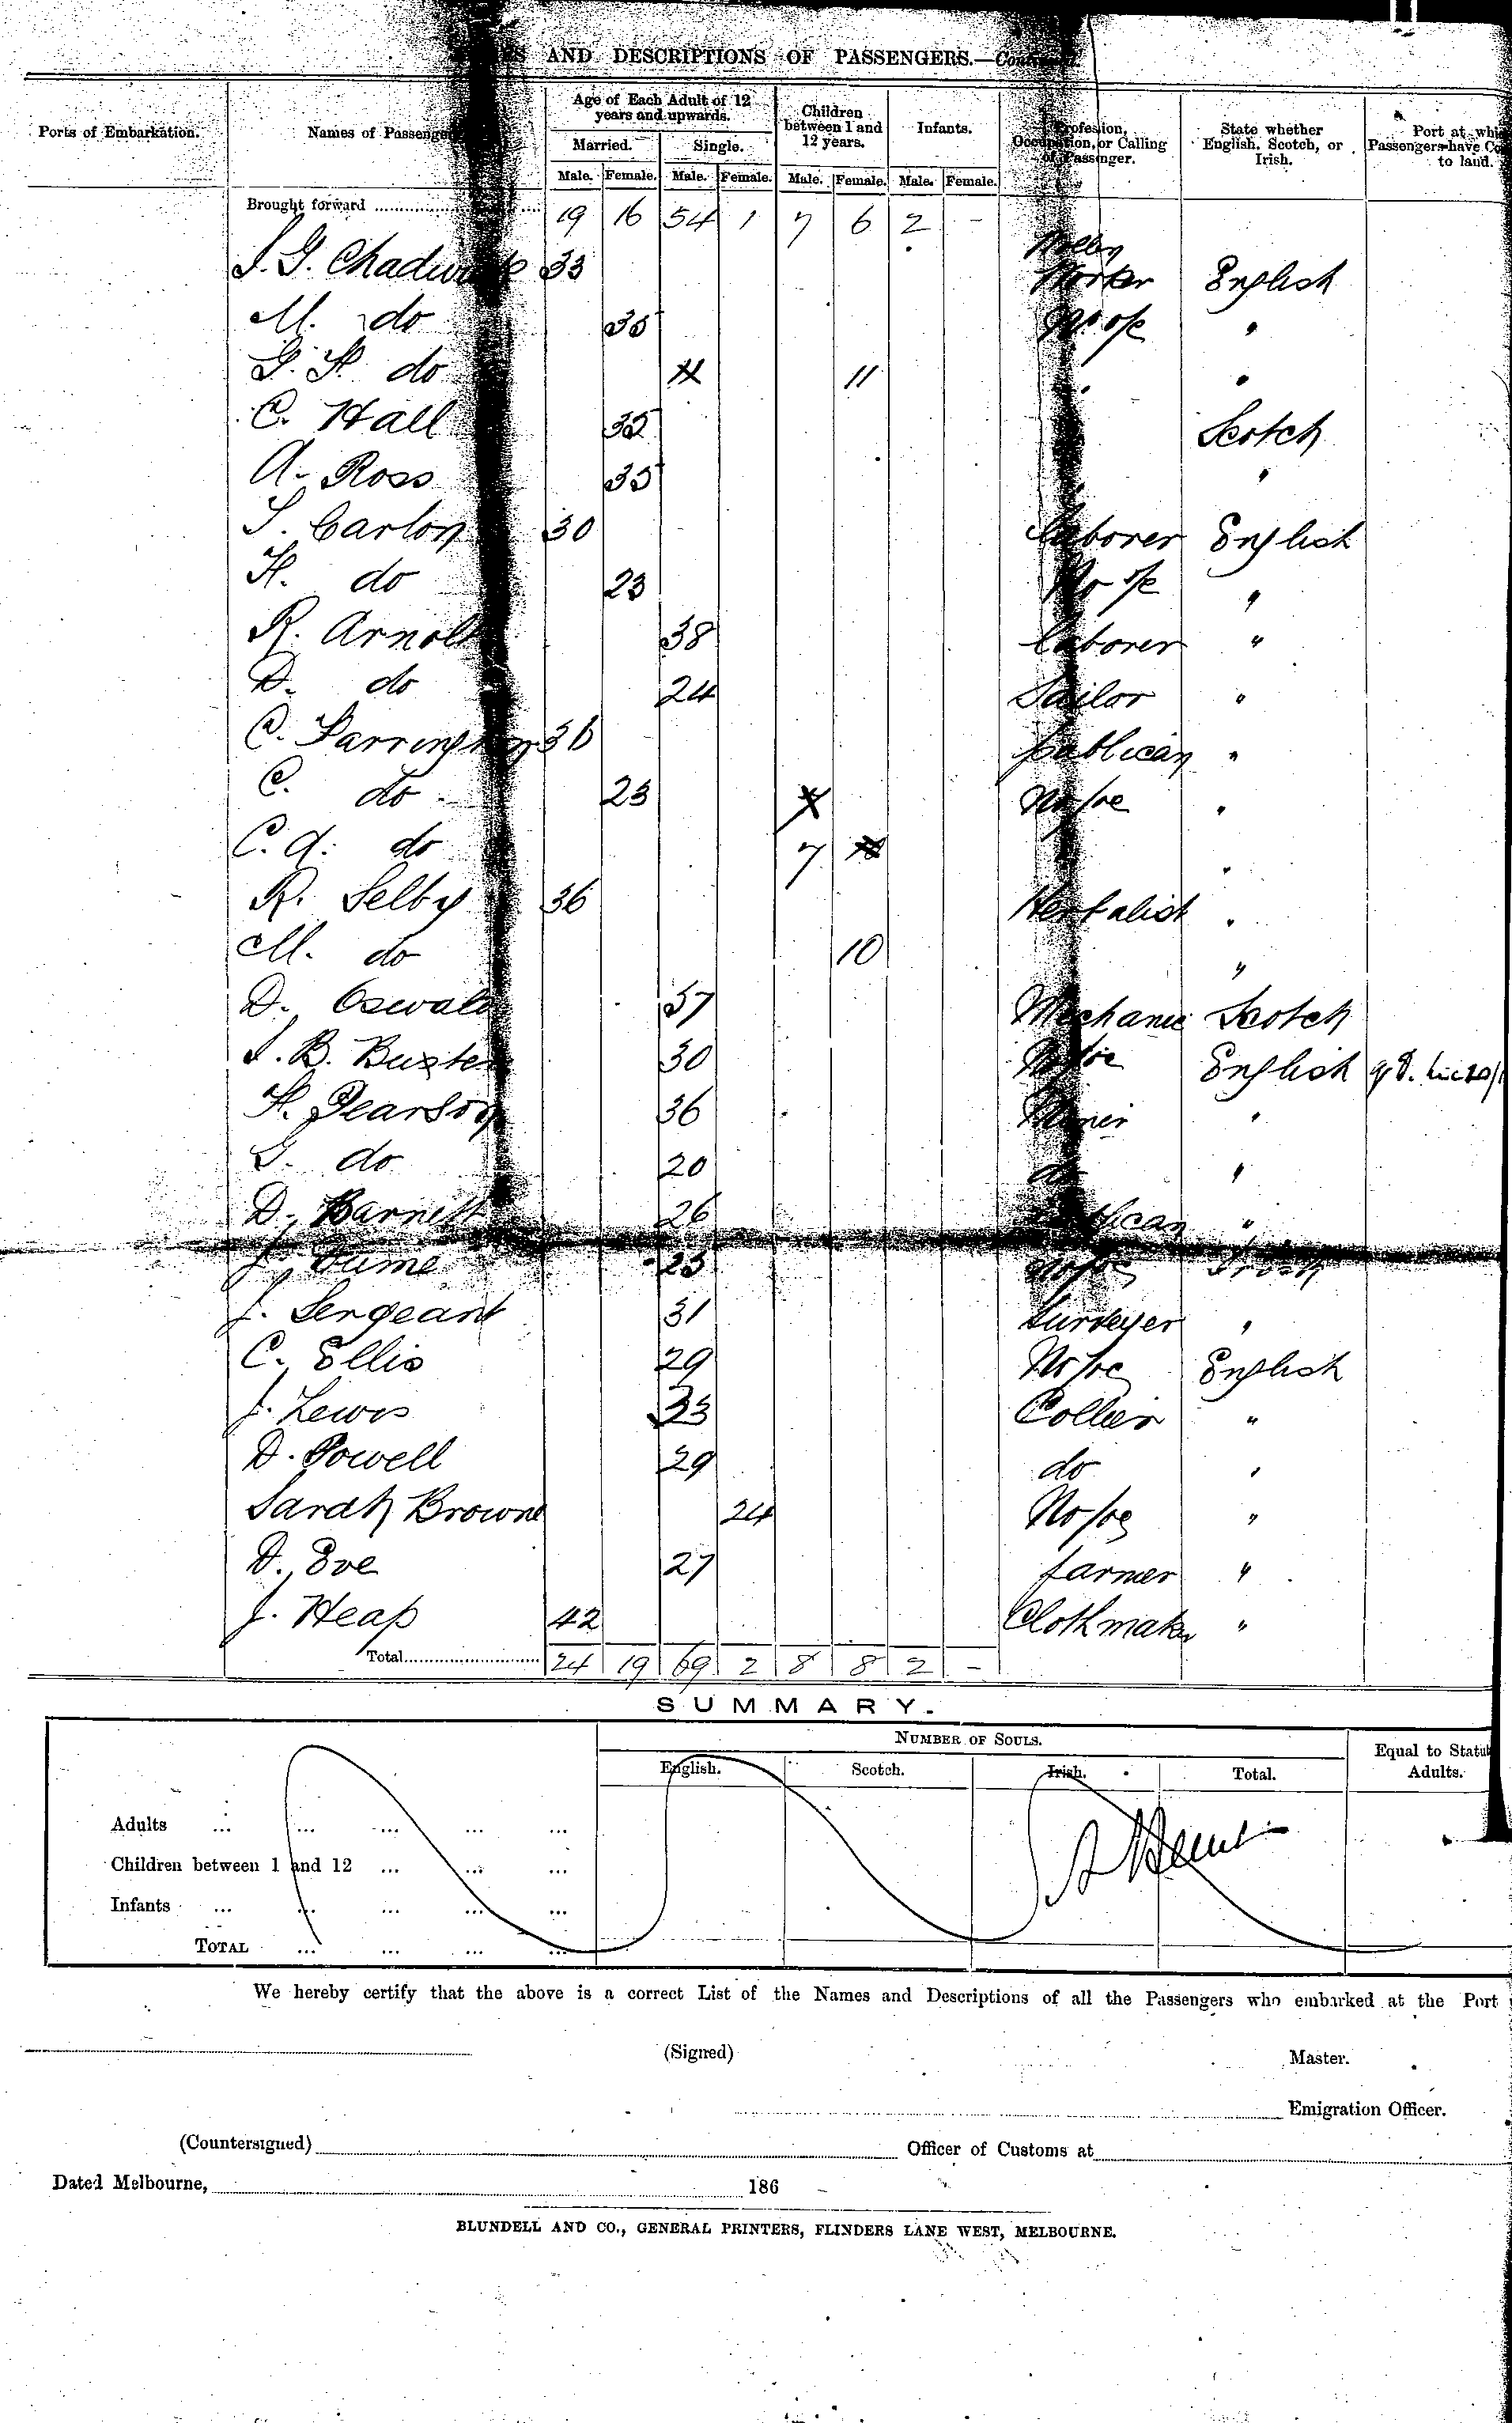 AND DESCRIPTIONS OF PASSENGERS.—
Ports of Embarkation. Names of Age of Each Adult of 12 years and upwards. Children between 1 and 12 years. Infants. Profession, Occupation, or Calling of Passenger. State whether English, Scotch, or Irish. Port at to land.
Married. Single.
Male. Female. Male. Female. Male. Female. Male. Female.
Brought forward 19 16 54 1 7 6 2 -
33 Worker English
M. do "
do 11 "
C. Hall Scotch
A. Ross 35 "
Carlon 30 Laborer English
H. do 23 "
R. Arnold 38 Laborer "
D. do 24 Sailor "
C. 36 publican "
C. do 23 "
C. A. do 7 "
R. Selby 36 Herbalist "
M. do 10 "
D. Oswald 37 Mechanic Scotch
B. 30 English
H. Pearson 36 Miner "
do 20 do "
D. Barnett 26 "
J. 
J. Sergeant 31 Surveyer "
C. Ellis 29 English
J. Lewis 33 Collier "
D. Powell 29 do "
Sarah Browne 24 "
D. Eve 27 farmer "
J. Heap 42 Clothmaker "
Total 24 19 69 2 8 8 2 -
SUMMARY.
NUMBER OF SOULS. Equal to Adults.
English. Scotch. Irish. Total.
Adults ... ... ... ... ...
Children between 1 and 12 ... ... ...
Infants ... ... ... ... ...
TOTAL ... ... ... ...
We hereby certify that the above is a correct List of the Names and Descriptions of all the Passengers who embarked at the Port
(Signed) Master.
Emigration Officer.
(Countersigned) Officer of Customs at
Dated Melbourne, 186
BLUNDELL AND CO., GENERAL PRINTERS, FLINDERS LANE WEST, MELBOURNE.